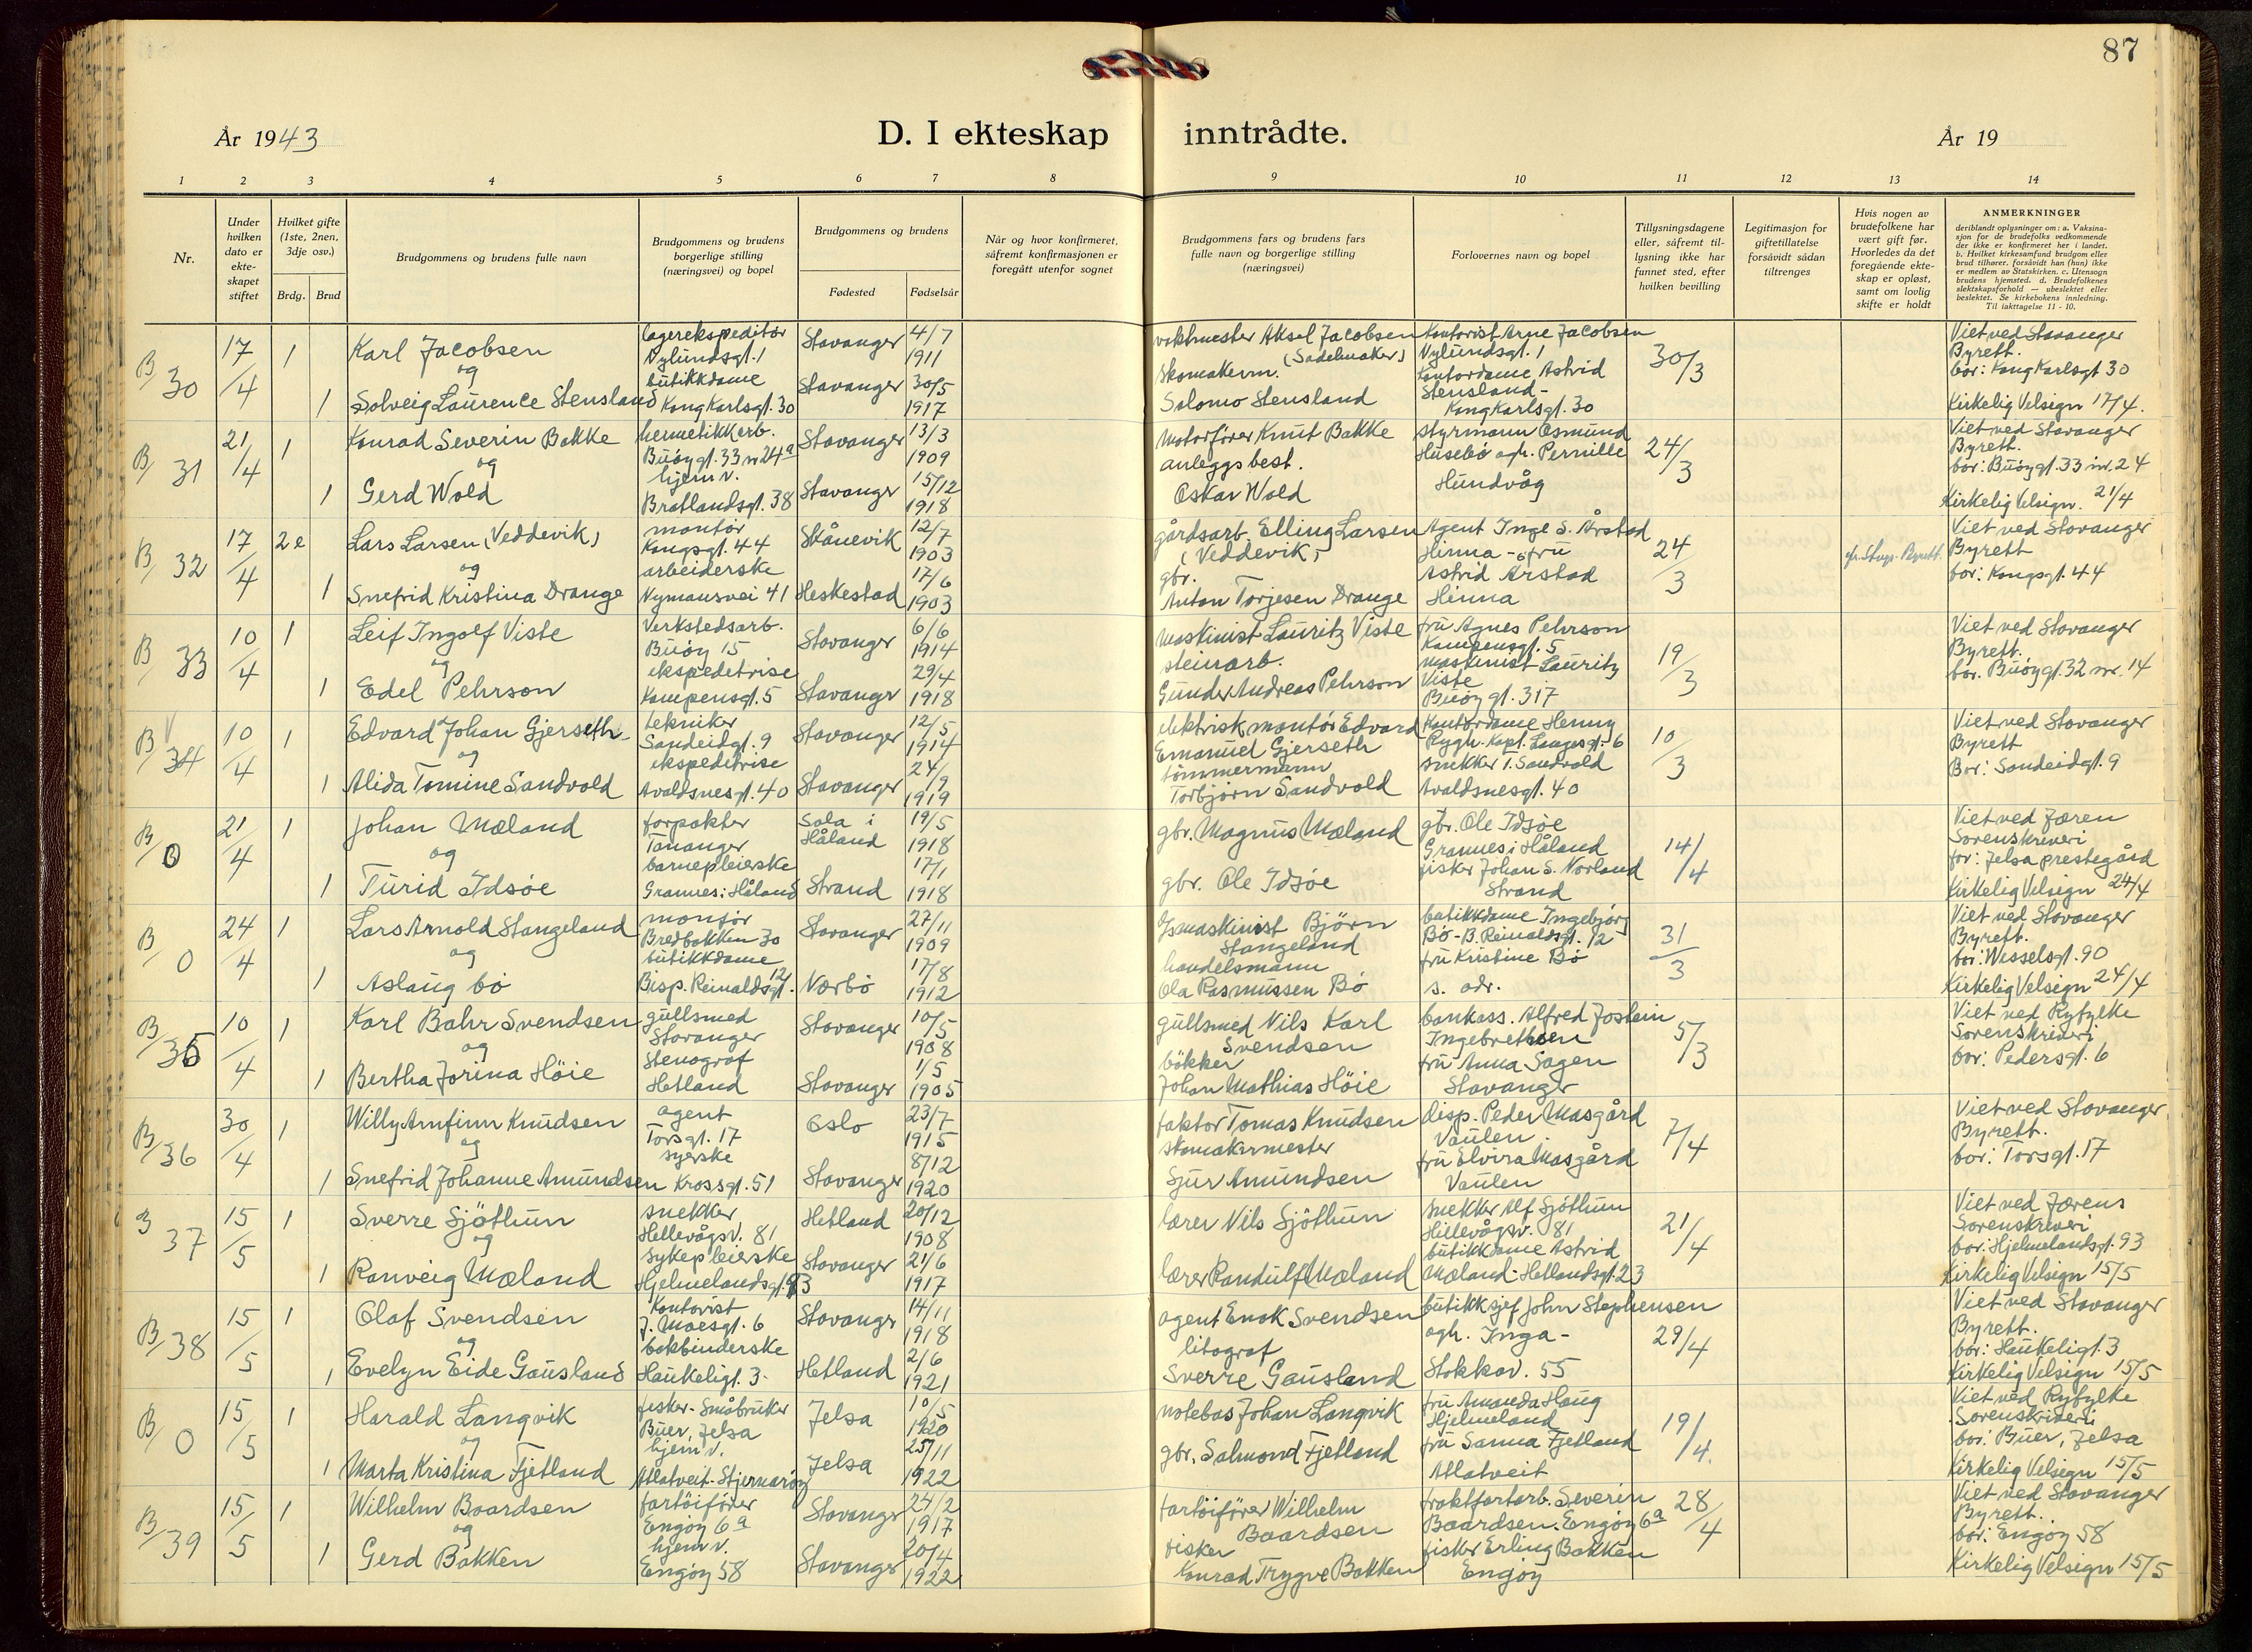 87
År 1943
D. I ekteskap inntrådte.
År 19
1 2 3 4 5 6 7 8 9 10 11 12 13 14
Nr.
Under hvilken dato er ekteskapet stiftet
Hvilket gifte (1ste, 2nen, 3dje osv.)
Brdg. Brud
Brudgommens og brudens fulle navn
Brudgommens og brudens borgerlige stilling (næringsvei) og bopel
Brudgommens og brudens
Fødested
Fødselsår
Når og hvor konfirmeret, såfremt konfirmasjonen er foregått utenfor sognet
Brudgommens fars og brudens fars fulle navn og borgerlige stilling (næringsvei)
Forlovernes navn og bopel
Tillysningsdagene eller, såfremt tillysning ikke har funnet sted, efter hvilken bevilling
Legitimasjon for giftetillatelse forsåvidt sådan tiltrenges
Hvis nogen av brudefolkene har vært gift før. Hvorledes da det foregående ekteskap er opløst, samt om lovlig skifte er holdt
ANMERKNINGER
deriblandt oplysninger om: a. Vaksinasjon for de brudefolks vedkommende der ikke er konfirmeret her i landet. b. Hvilket kirkesamfund brudgom eller brud tilhører, forsåvidt han (hun) ikke er medlem av Statskirken. c. Utensogn brudens hjemsted. d. Brudefolkenes slektskapsforhold — ubeslektet eller beslektet. Se kirkebokens innledning. Til iakttagelse 11 - 10.
B/30 17/4 1 Karl Jacobsen
og
1 Solveig Laurence Stensland
lagerekspeditør
Nylundsgt. 1
butikkdame
Kong Karlsgt. 30
Stavanger 4/7 1911
Stavanger 30/5 1917
vaktmester Aksel Jacobsen
(Sadelmaker)
skomakerm.
Salomo Stensland
Kontorist Arne Jacobsen
Nylundsgt. 1
Kontordame Astrid
Stensland -
Kong Karlsgt. 30
30/3
Viet ved Stavanger
Byrett.
bor: Kong Karlsgt 30
Kirkelig Velsign 17/4.
B/31 21/4 1 Konrad Severin Bakke
og
1 Gerd Wold
hermetikkarb.
Buøygt. 33 nr 24a
hjemv.
Bratlandsgt. 38
Stavanger 13/3 1909
Stavanger 15/12 1918
Motorfører Knut Bakke
anleggsbest.
Oskar Wold
styrmann Osmund
Husebø og h. Pernille
Hundvåg
24/3
Viet ved Stavanger
Byrett.
bor: Buøygt. 33 nr. 24
Kirkelig Velsign. 21/4
B/32 17/4 2e Lars Larsen (Veddevik)
og
1 Snefrid Kristina Drange
montør
Kongsgt. 44
arbeiderske
Nymansvei 41
Skånevik 12/7 1903
Heskestad 17/6 1903
gårdsarb. Elling Larsen
(Veddevik)
gbr.
Anton Torjesen Drange
Agent Inge S. Årstad
Hinna - o fru
Astrid Årstad
Hinna
24/3
Viet ved Stavanger
Byrett
bor: Kongsgt. 44
B/33 10/4 1 Leif Ingolf Viste
og
1 Edel Pehrson
Verkstedsarb.
Buøy 15
ekspeditrise
Kampensgt. 5
Stavanger 6/6 1914
Stavanger 29/4 1918
Maskinist Lauritz Viste
steinarb.
Gunder Andreas Pehrson
fru Agnes Pehrson
Kampensgt. 5
maskinist Lauritz
Viste
Buøygt. 317
19/3
Viet ved Stavanger
Byrett.
bor. Buøygt. 32 nr. 14
B/34 10/4 1 Edvard Johan Gjerseth
og
1 Alida Tomine Sandvold
tekniker
Sandeidgt. 9
ekspeditrise
Avaldsnesgt. 40
Stavanger 12/5 1914
Stavanger 24/9 1919
elektrisk montør Edvard
Emanuel Gjerseth
tømmermann
Torbjørn Sandvold
Kontordame Henny
Rygh. Kapt. Langesgt. 6
snekker T. Sandvold
Avaldsnesgt. 40
10/3
Viet ved Stavanger
Byrett
Bor: Sandeidgt. 9
B/0 21/4 1 Johan Mæland
og
1 Turid Idsøe
forpakter
Tananger
barnepleierske
Grannes i Håland
Sola i Håland 19/5 1918
Strand 17/1 1918
gbr. Magnus Mæland
gbr. Ole Idsøe
gbr. Ole Idsøe
Grannes i Håland
fisker Johan S. Norland
Strand
14/4
Viet ved Jæren
Sorenskriveri
for: Jelsa prestegård
Kirkelig Velsign 24/4
B/0 24/4 1 Lars Arnold Stangeland
og
1 Aslaug Bø
montør
Bredbakken 30
butikkdame
Bisp. Reinaldsgt. 12
Stavanger 27/11 1909
Nærbø 17/8 1912
Bjørn
Stangeland
handelsmann
Ola Rasmussen Bø
butikkdame Ingebjørg
Bø - B. Reinaldsgt. 12
fru Kristine Bø
s. adr.
31/3
Viet ved Stavanger
Byrett.
bor: Wesselsgt. 90
Kirkelig Velsign 24/4
B/35 10/4 1 Karl Bahr Svendsen
og
1 Bertha Jorina Höie
gullsmed
Stavanger
Stenograf
Hetland
Stavanger 10/5 1908
Stavanger 1/5 1905
gullsmed Nils Karl
Svendsen
bøkker
Johan Mathias Höie
bankass. Alfred Jostein
Ingebrethsen
fru Anna Sagen
Stavanger
5/3
Viet ved Ryfylke
Sorenskriveri
bor: Pedersgt. 6
B/36 30/4 1 Willy Arnfinn Knudsen
og
1 Snefrid Johanne Amundsen
agent
Torsgt. 17
syerske
Krossgt. 51
Oslo 23/7 1915
Stavanger 8/12 1920
faktor Tomas Knudsen
skomakermester
Sjur Amundsen
disp. Peder Masgård
Vaulen
fru Elvira Masgård
Vaulen
7/4
Viet ved Stavanger
Byrett.
bor: Torsgt. 17
B/37 15/5 1 Sverre Sjöthun
og
1 Ranveig Mæland
snekker
Hillevågsv. 81
sykepleierske
Hjelmelandsgt. 93
Hetland 20/12 1908
Stavanger 21/6 1917
lærer Nils Sjöthun
lærer Randulf Mæland
snekker Alf Sjöthun
Hillevågsv. 81
butikkdame Astrid
Mæland - Hetlandsgt. 23
21/4
Viet ved Jærens
Sorenskriveri
bor: Hjelmelandsgt. 93
Kirkelig Velsign 15/5
B/38 15/5 1 Olaf Svendsen
og
1 Evelyn Eide Gausland
Kontorist
J. Moesgt. 6
bokbinderske
Haukeligt. 3.
Stavanger 14/11 1918
Hetland 2/6 1921
agent Enok Svendsen
litograf
Sverre Gausland
butikksjef John Stephensen
og h. Inga -
Stokkav. 55
29/4
Viet ved Stavanger
Byrett.
bor: Haukeligt. 3
Kirkelig Velsign 15/5
B/0 15/5 1 Harald Langvik
og
1 Marta Kristina Fjetland
fisker - Småbruker
Buer, Jelsa
hjemv.
Atlatveit - Stjernarøy
Jelsa 10/5 1920
Jelsa 25/11 1922
notebas Johan Langvik
gbr. Salmond Fjetland
fru Amanda Haug
Hjelmeland
fru Sanna Fjetland
Atlatveit
19/4.
Viet ved Ryfylke
Sorenskriveri
bor: Buer, Jelsa
Kirkelig Velsign 15/5
B/39 15/5 1 Wilhelm Baardsen
og
1 Gerd Bakken
fartöifører
Engøy 6a
hjemv.
Engøy 58
Stavanger 24/2 1917
Stavanger 20/4 1922
fartöifører Wilhelm
Baardsen
fisker
Konrad Trygve Bakken
fraktfartarb. Severin
Baardsen. Engøy 6a
fisker Erling Bakken
Engøy
28/4
Viet ved Stavanger
Byrett.
bor: Engøy 58
Kirkelig Velsign 15/5